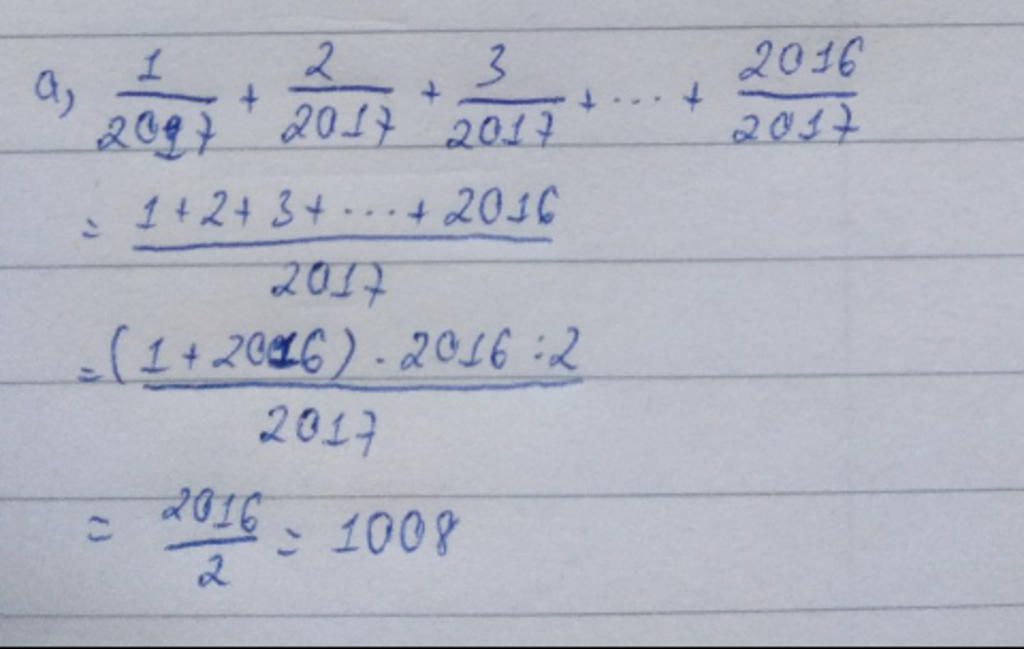 a, 1/2017 + 2/2017 + 3/2017 + ... + 2016/2017
= 1 + 2 + 3 + ... + 2016 / 2017
= (1 + 2016) . 2016 : 2 / 2017
= 2016/2 = 1008